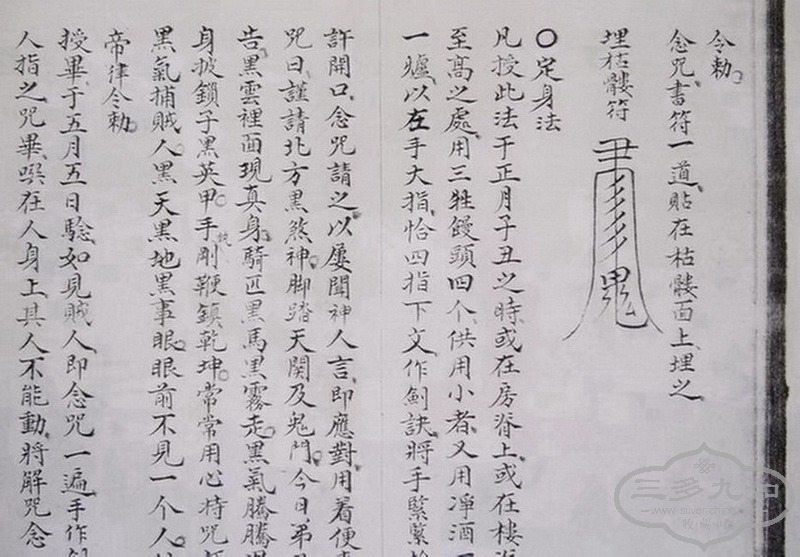 令勅
念咒書符一道貼在枯髏面上埋之
埋枯髏符
〇定身法
凡授此法于正月子丑之時或在房脊上或在樓
至高之處用三牲饅頭四个供用小者又用凈酒
一爐以在手大指恰四指下文作劍訣將手緊緊
許開口念咒請之以屢聞神人言即應對用着便
咒曰謹請北方黑煞神脚踏天関及鬼門今日弟
告黑雲裡面現真身騎匹黑馬黑霧走黑氣騰騰
身披鎖子黑英甲手剛鞭鎮乾坤常常用心持咒
黑氣捕賊人黑天黑地黑事眼眼前不見一个人
帝律令勅
授畢于五月五日騐如見賊人即念咒一遍手作劍
人指之咒畢噀在人身上其人不能動將解咒念
三多九如
www.silver-china